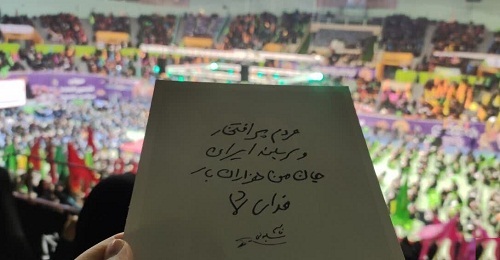 مردم پر افتخار
و سربلند ایران
جان من هزاران بار
فدای